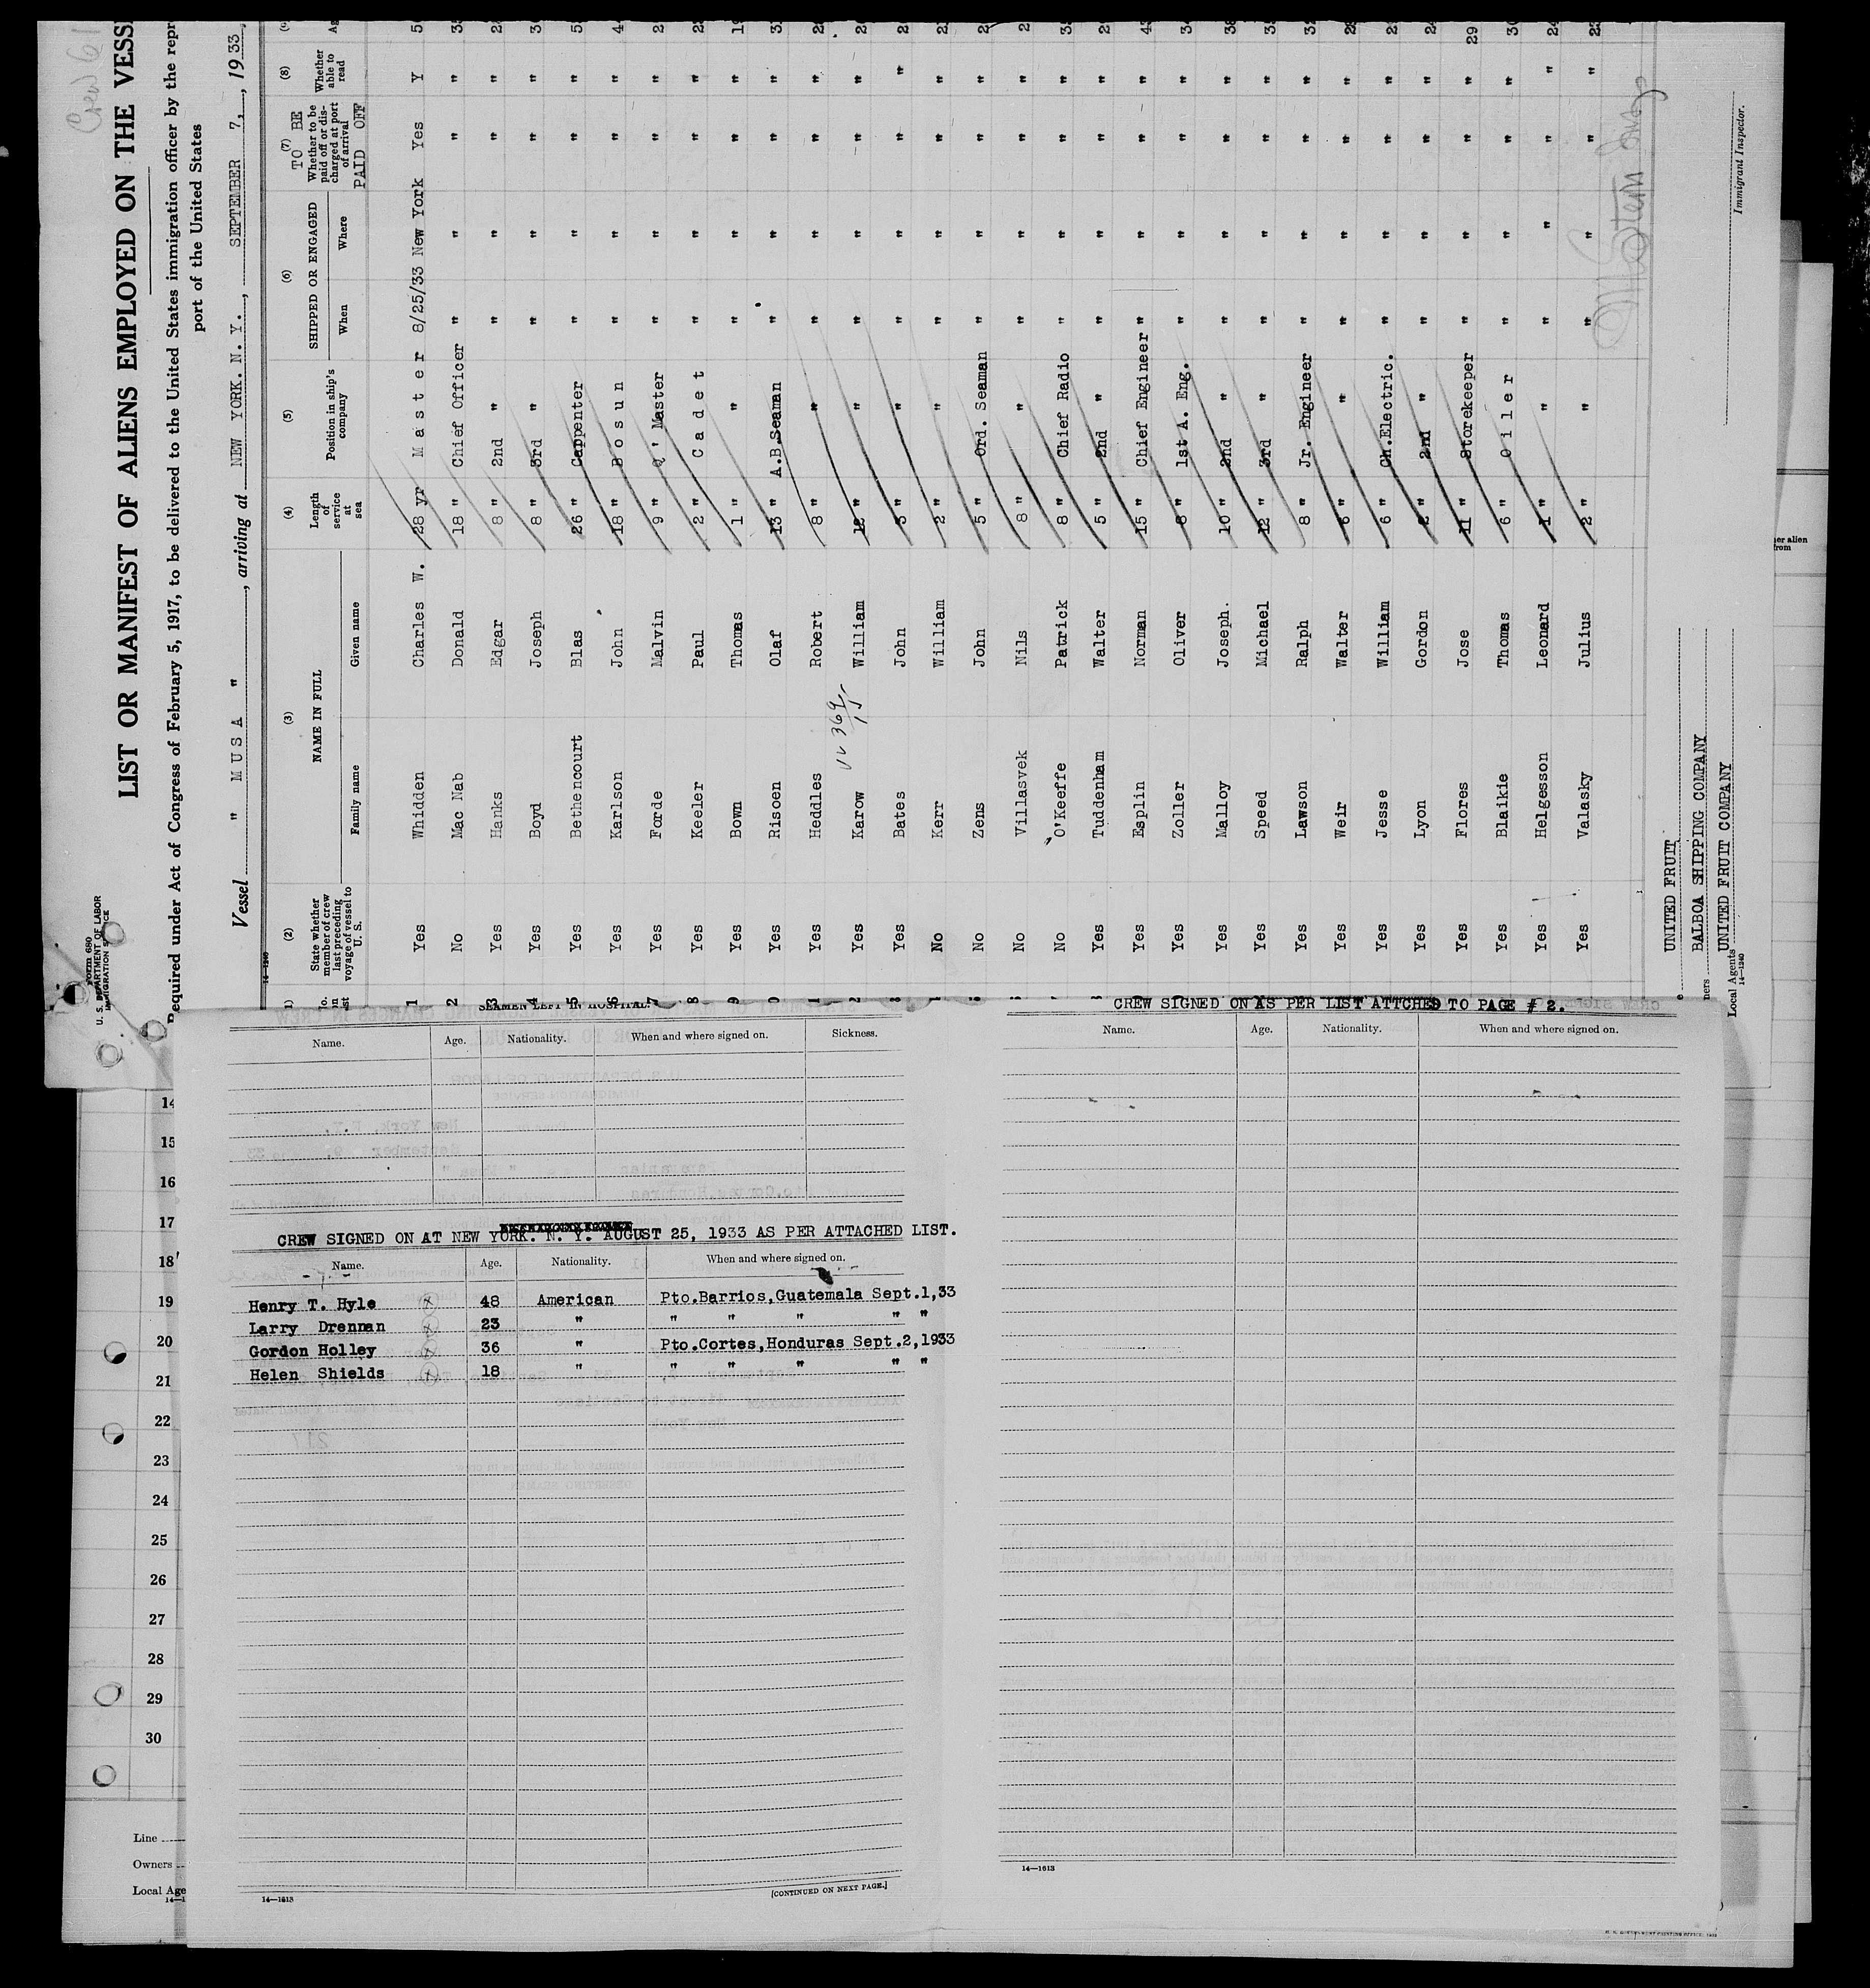 Form 680
U. S. DEPARTMENT OF LABOR
IMMIGRATION SERVICE
LIST OR MANIFEST OF ALIENS EMPLOYED ON THE VESS
Required under Act of Congress of February 5, 1917, to be delivered to the United States immigration officer by the repr
port of the United States
Vessel " MUSA ", arriving at NEW YORK. N. Y., SEPTEMBER 7, 1933
(2) (3) (4) (5) (6) (7) (8)
State whether member of crew last preceding voyage of vessel to U. S.
NAME IN FULL
Family name Given name
Length of service at sea
Position in ship's company
SHIPPED OR ENGAGED
When Where
TO BE
Whether to be paid off or discharged at port of arrival
PAID OFF
Whether able to read
1 Yes Whidden Charles W. 28 yr Master 8/25/33 New York Yes Y
2 No Mac Nab Donald 18 " Chief Officer " " " "
3 Yes Hanks Edgar 8 " 2nd " " " " "
4 Yes Boyd Joseph 8 " 3rd " " " " "
5 Yes Bethencourt Blas 26 " Carpenter " " " "
6 Yes Karlson John 18 " Bosun " " " "
7 Yes Forde Malvin 9 " Q' Master " " " "
8 Yes Keeler Paul 2 " Cadet " " " "
9 Yes Bown Thomas 1 " " " " " "
0 Yes Risoen Olaf 13 " A.B.Seaman " " " "
1 Yes Heddles Robert 8 " " " " " "
2 Yes Karow William 12 " " " " " "
Yes Bates John 3 " " " " " "
No Kerr William 2 " " " " " "
No Zens John 5 " Ord. Seaman " " " "
No Villasvek Nils 8 " " " " " "
No O'Keeffe Patrick 8 " Chief Radio " " " "
Yes Tuddenham Walter 5 " 2nd " " " " "
Yes Esplin Norman 15 " Chief Engineer " " " "
Yes Zoller Oliver 8 " 1st A. Eng. " " " "
Yes Malloy Joseph. 10 " 2nd " " " " "
Yes Speed Michael 12 " 3rd " " " " "
Yes Lawson Ralph 8 " Jr. Engineer " " " "
Yes Weir Walter 6 " " " " " "
Yes Jesse William 6 " Ch.Electric. " " " "
Yes Lyon Gordon 2 " 2nd " " " " "
Yes Flores Jose 11 " Storekeeper " " " " 29
Yes Blaikie Thomas 6 " Oiler " " " "
Yes Helgesson Leonard 1 " " " " " "
Yes Valasky Julius 2 " " " " " "
UNITED FRUIT
BALBOA SHIPPING COMPANY
Local Agents UNITED FRUIT COMPANY
14—1240
Immigrant Inspector.
SEAMEN LEFT IN HOSPITAL.
Name. Age. Nationality. When and where signed on. Sickness.
CREW SIGNED ON AT NEW YORK. N. Y. AUGUST 25, 1933 AS PER ATTACHED LIST.
Name. Age. Nationality. When and where signed on.
Henry T. Hyle 48 American Pto.Barrios,Guatemala Sept.1,33
Larry Drennan 23 " " " " " "
Gordon Holley 36 " Pto.Cortes,Honduras Sept.2,1933
Helen Shields 18 " " " " " "
14—1613
[CONTINUED ON NEXT PAGE.]
CREW SIGNED ON AS PER LIST ATTCHED TO PAGE # 2.
Name. Age. Nationality. When and where signed on.
14—1613
14
15
16
17
18
19
20
21
22
23
24
25
26
27
28
29
30
Line
Owners
Local Age